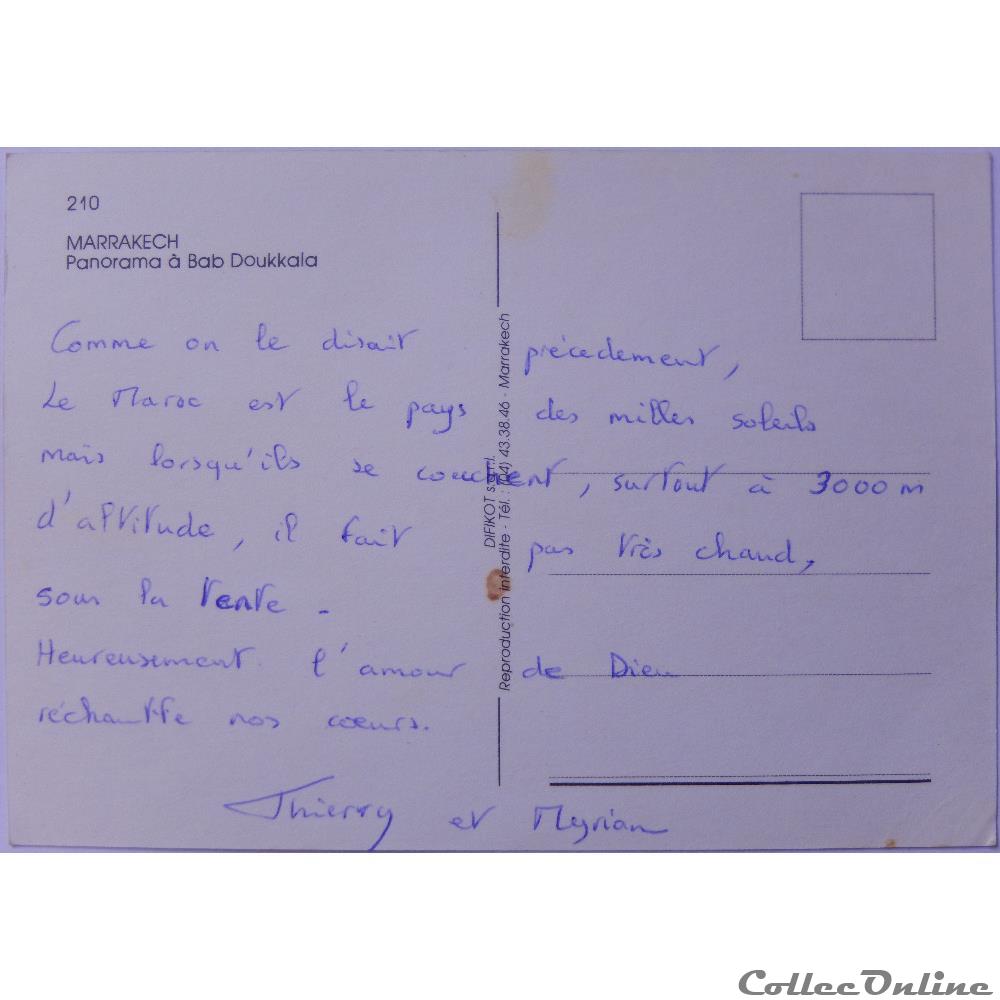 210
MARRAKECH
Panorama à Bab Doukkala
Comme on le disait précedement,
Le Maroc est le pays des milles soleils
mais lorsqu'ils se couchent, surtout à 3000 m
d'altitude, il fait pas très chaud,
sous la tente.
Heureusement l'amour de Dieu
réchauffe nos cœurs.
Thierry et Myriam
DIFIKOT s.a.r.l.
Reproduction interdite - Tél. : (04) 43.38.46 - Marrakech
CollecOnline